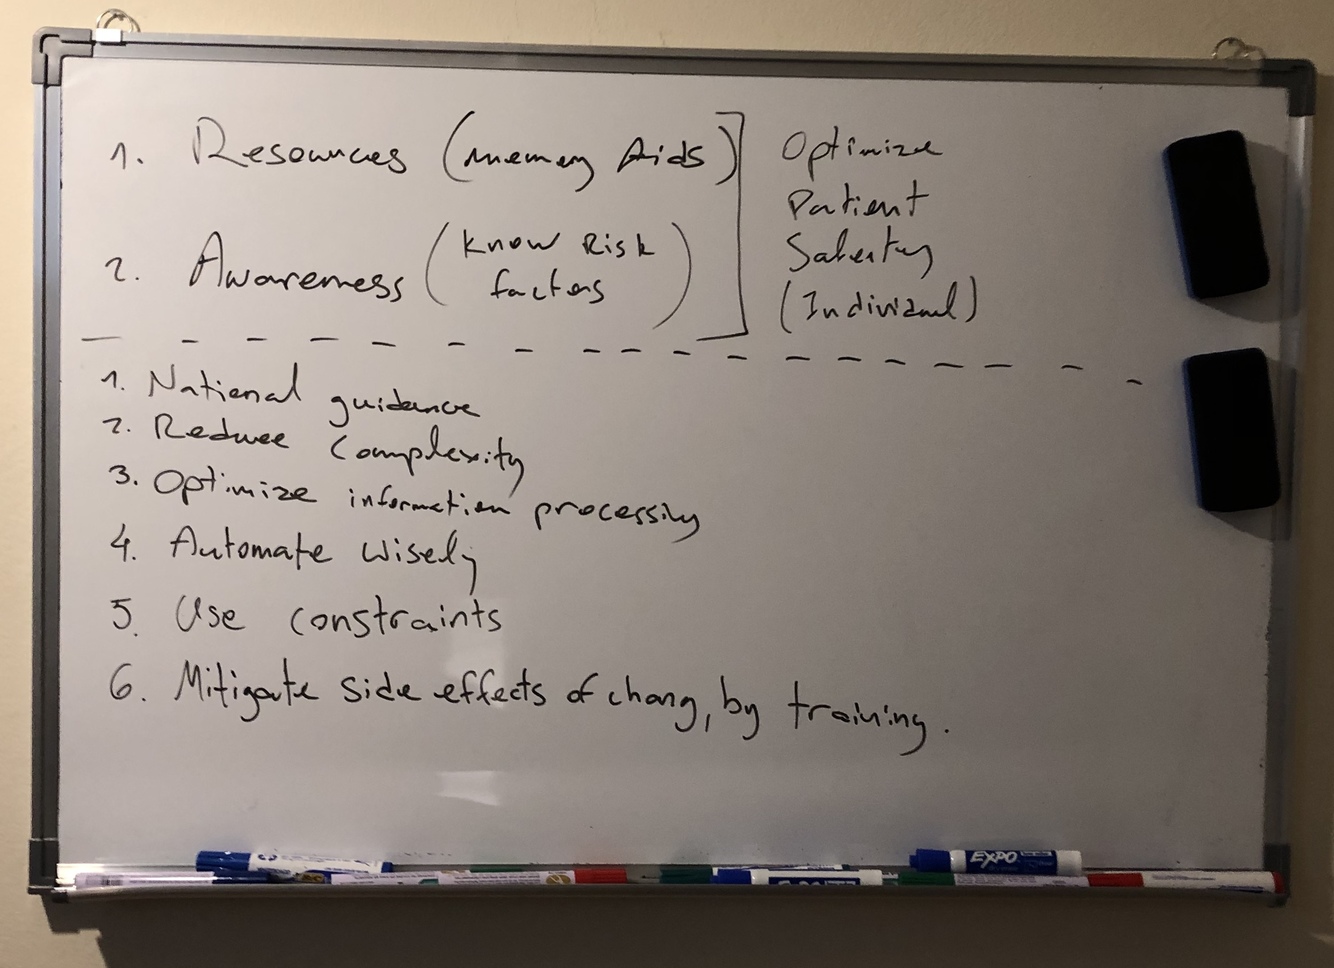 1. Resources (memory Aids)
2. Awareness (Know Risk
factors)
Optimize
Patient
Safety
(Individual)
1. National guidance
2. Reduce Complexity
3. Optimize information processing
4. Automate Wisely
5. Use constraints
6. Mitigate side effects of chang, by training.
EXPO